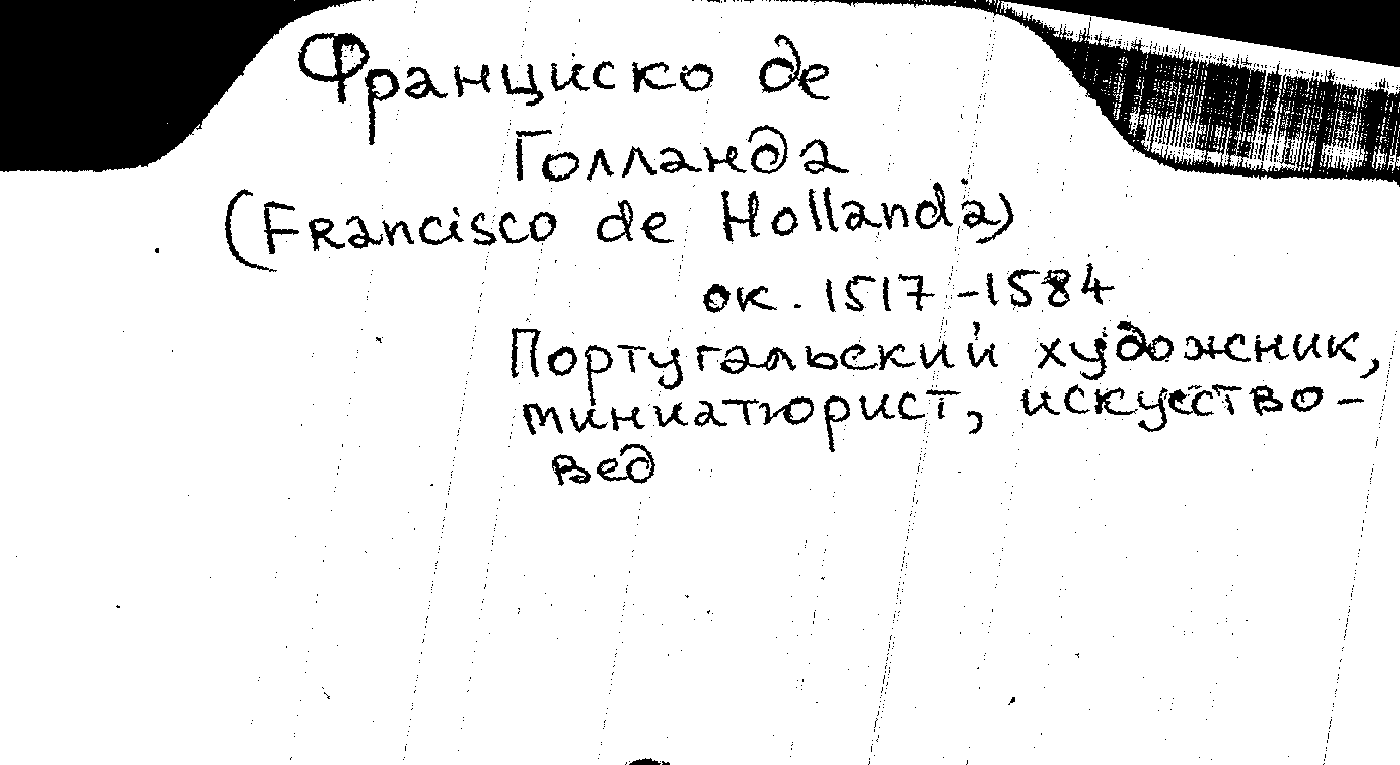 Франциско де
Голланда
(Francisco de Hollanda)
ок. 1517-1584
Португальский художник,
миниатюрист, искусство-
вед